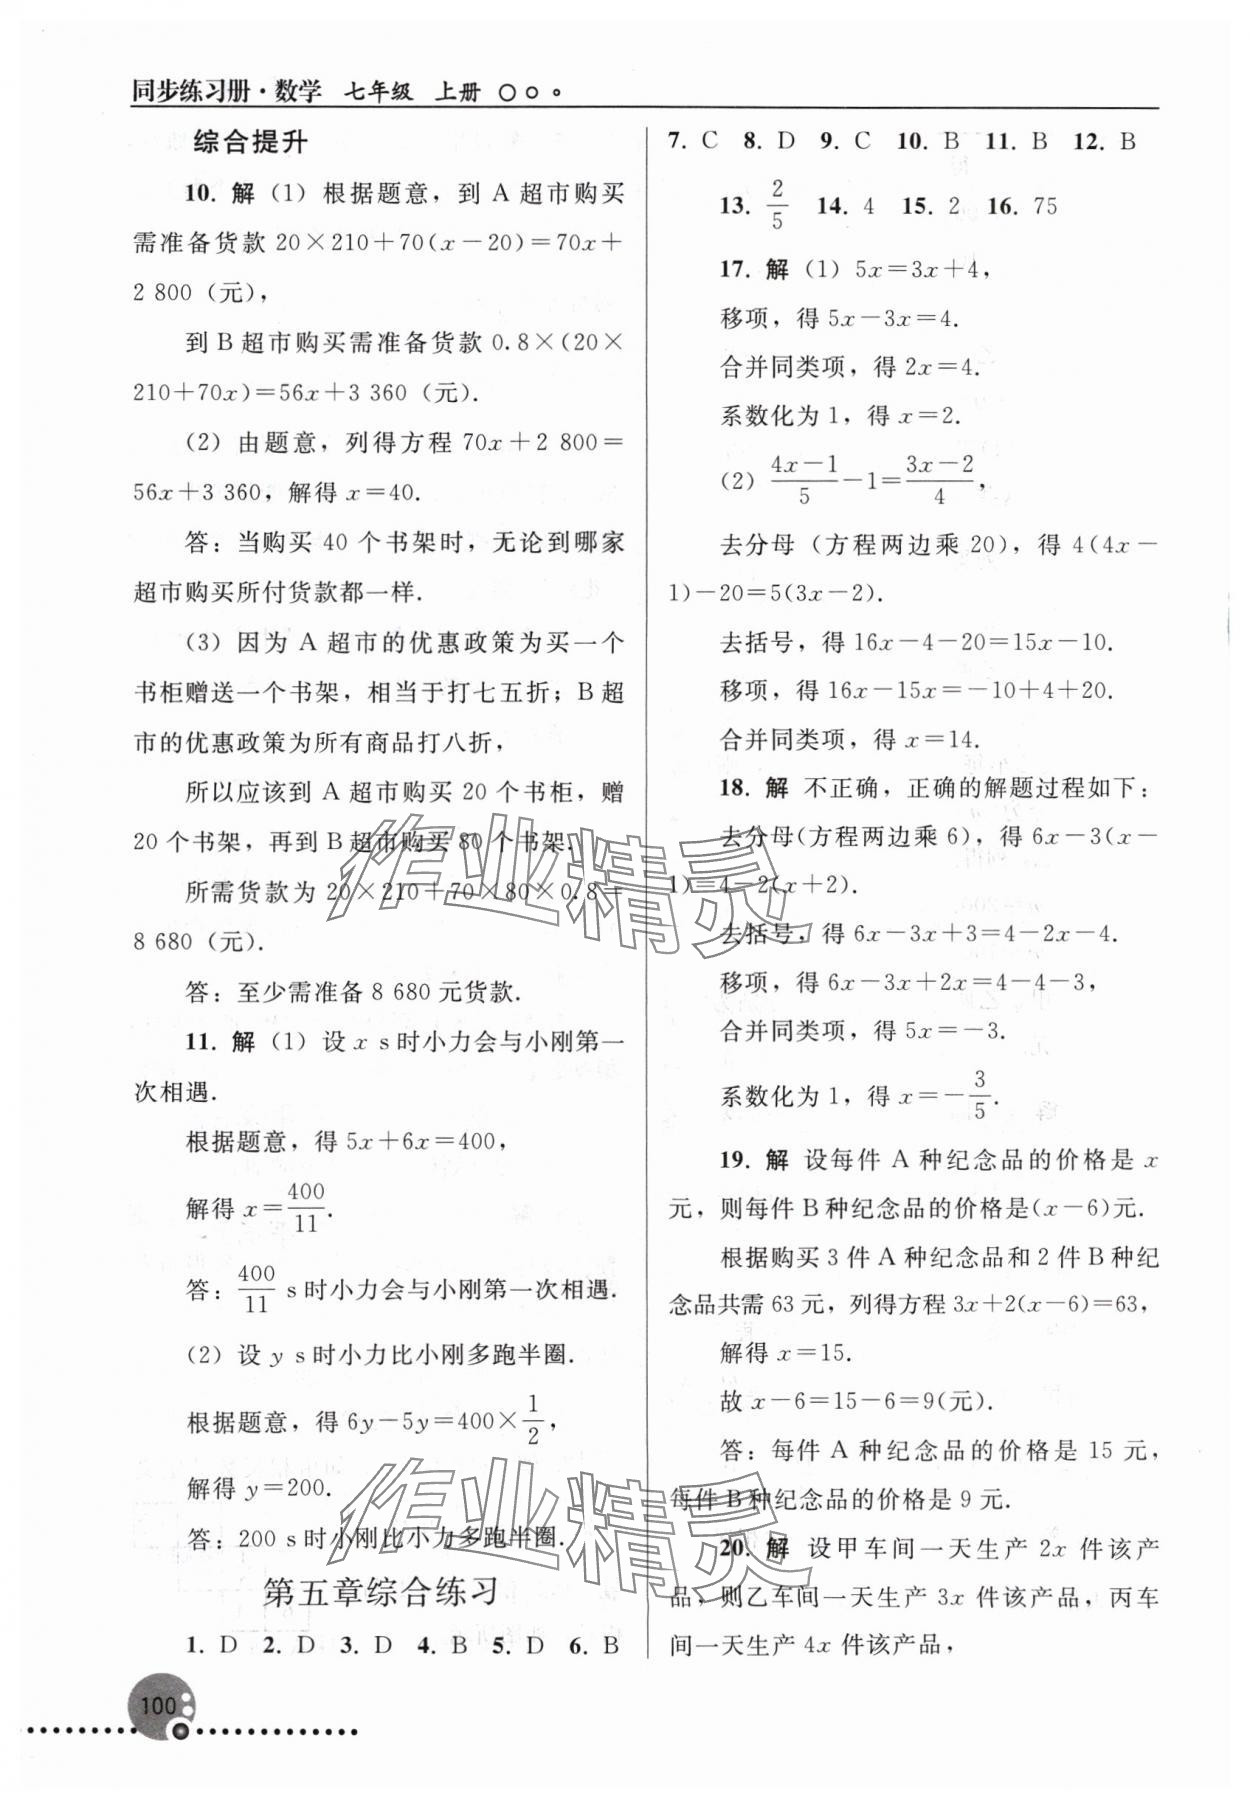 同步练习册·数学 七年级 上册
综合提升
10. 解 (1) 根据题意，到 A 超市购买
需准备货款 20×210+70(x-20)=70x+
2 800 (元)，
到 B 超市购买需准备货款 0.8×(20×
210+70x)=56x+3 360 (元).
(2) 由题意，列得方程 70x+2 800=
56x+3 360，解得 x=40.
答：当购买 40 个书架时，无论到哪家
超市购买所付货款都一样.
(3) 因为 A 超市的优惠政策为买一个
书柜赠送一个书架，相当于打七五折；B 超
市的优惠政策为所有商品打八折，
所以应该到 A 超市购买 20 个书柜，赠
20 个书架，再到 B 超市购买 80 个书架.
所需货款为 20×210+70×80×0.8=
8 680 (元).
答：至少需准备 8 680 元货款.
11. 解 (1) 设 x s时小力会与小刚第一
次相遇.
根据题意，得 5x+6x=400，
解得 x=400/11.
答：400/11 s时小力会与小刚第一次相遇.
(2) 设 y s时小力比小刚多跑半圈.
根据题意，得 6y-5y=400×1/2，
解得 y=200.
答：200 s时小刚比小力多跑半圈.
第五章综合练习
1. D 2. D 3. D 4. B 5. D 6. B
7. C 8. D 9. C 10. B 11. B 12. B
13. 2/5 14. 4 15. 2 16. 75
17. 解 (1) 5x=3x+4，
移项，得 5x-3x=4.
合并同类项，得 2x=4.
系数化为 1，得 x=2.
(2) (4x-1)/5-1=(3x-2)/4，
去分母 (方程两边乘 20)，得 4(4x-
1)-20=5(3x-2).
去括号，得 16x-4-20=15x-10.
移项，得 16x-15x=-10+4+20.
合并同类项，得 x=14.
18. 解 不正确，正确的解题过程如下：
去分母(方程两边乘 6)，得 6x-3(x-
1)=4-2(x+2).
去括号，得 6x-3x+3=4-2x-4.
移项，得 6x-3x+2x=4-4-3，
合并同类项，得 5x=-3.
系数化为 1，得 x=-3/5.
19. 解 设每件 A 种纪念品的价格是 x
元，则每件 B 种纪念品的价格是(x-6)元.
根据购买 3 件 A 种纪念品和 2 件 B 种纪
念品共需 63 元，列得方程 3x+2(x-6)=63，
解得 x=15.
故 x-6=15-6=9(元).
答：每件 A 种纪念品的价格是 15 元，
每件 B 种纪念品的价格是 9 元.
20. 解 设甲车间一天生产 2x 件该产
品，则乙车间一天生产 3x 件该产品，丙车
间一天生产 4x 件该产品，
100
作业精灵
作业精灵